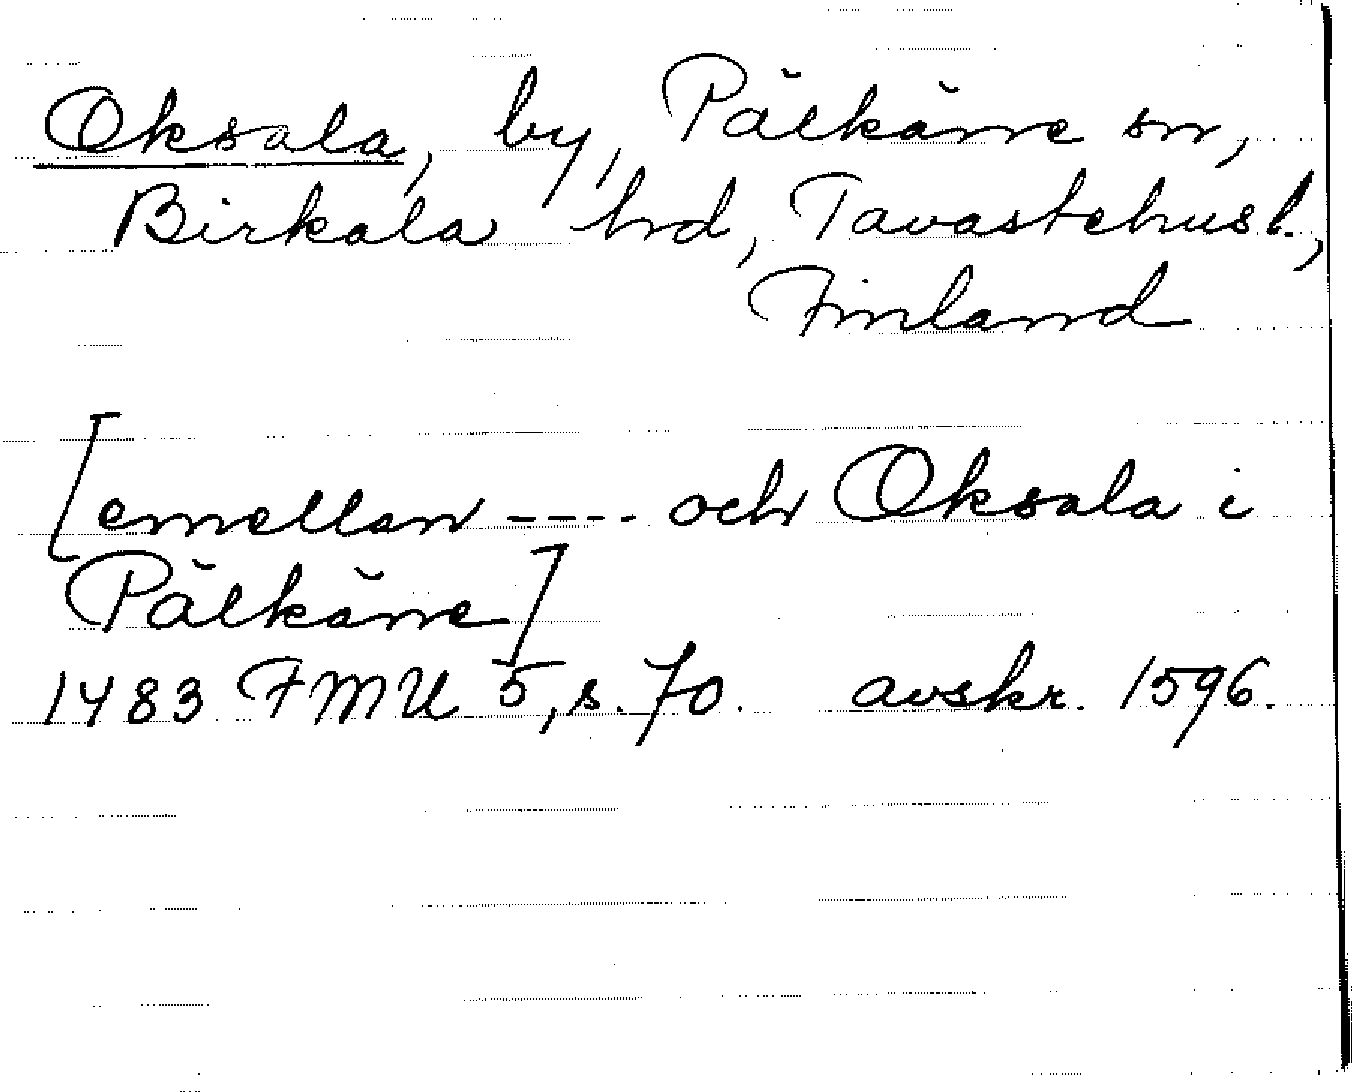 Oksala, by, Pälkäne sn,
Birkala hrd, Tavastehus l.,
Finland
[emellan ---- och Oksala i
Pälkäne]
1483 FMU 5, s. 70. avskr. 1596.